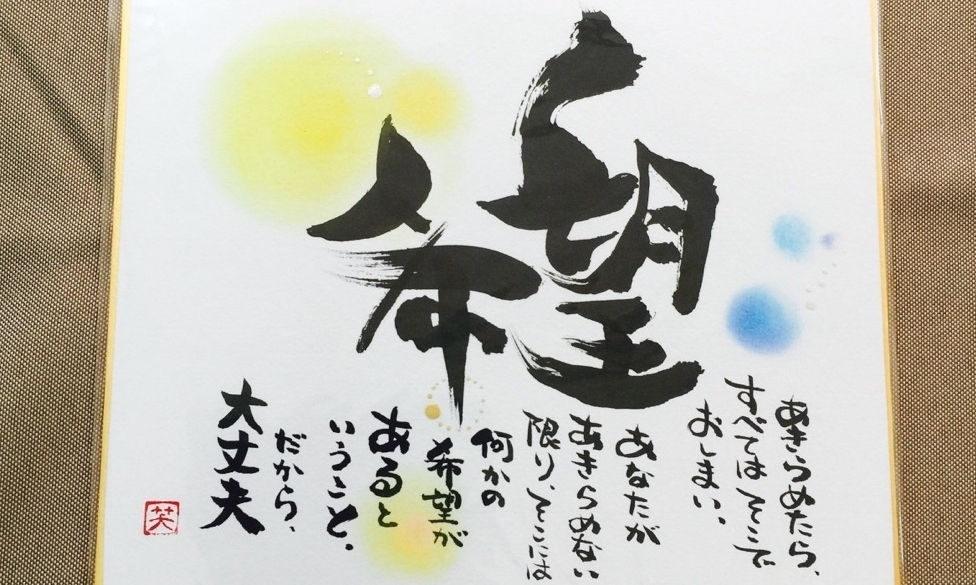 希望
あきらめたら、
すべてはそこで
おしまい。
あなたが
あきらめない
限り、そこには
何かの
希望が
あると
いうこと。
だから、
大丈夫
笑